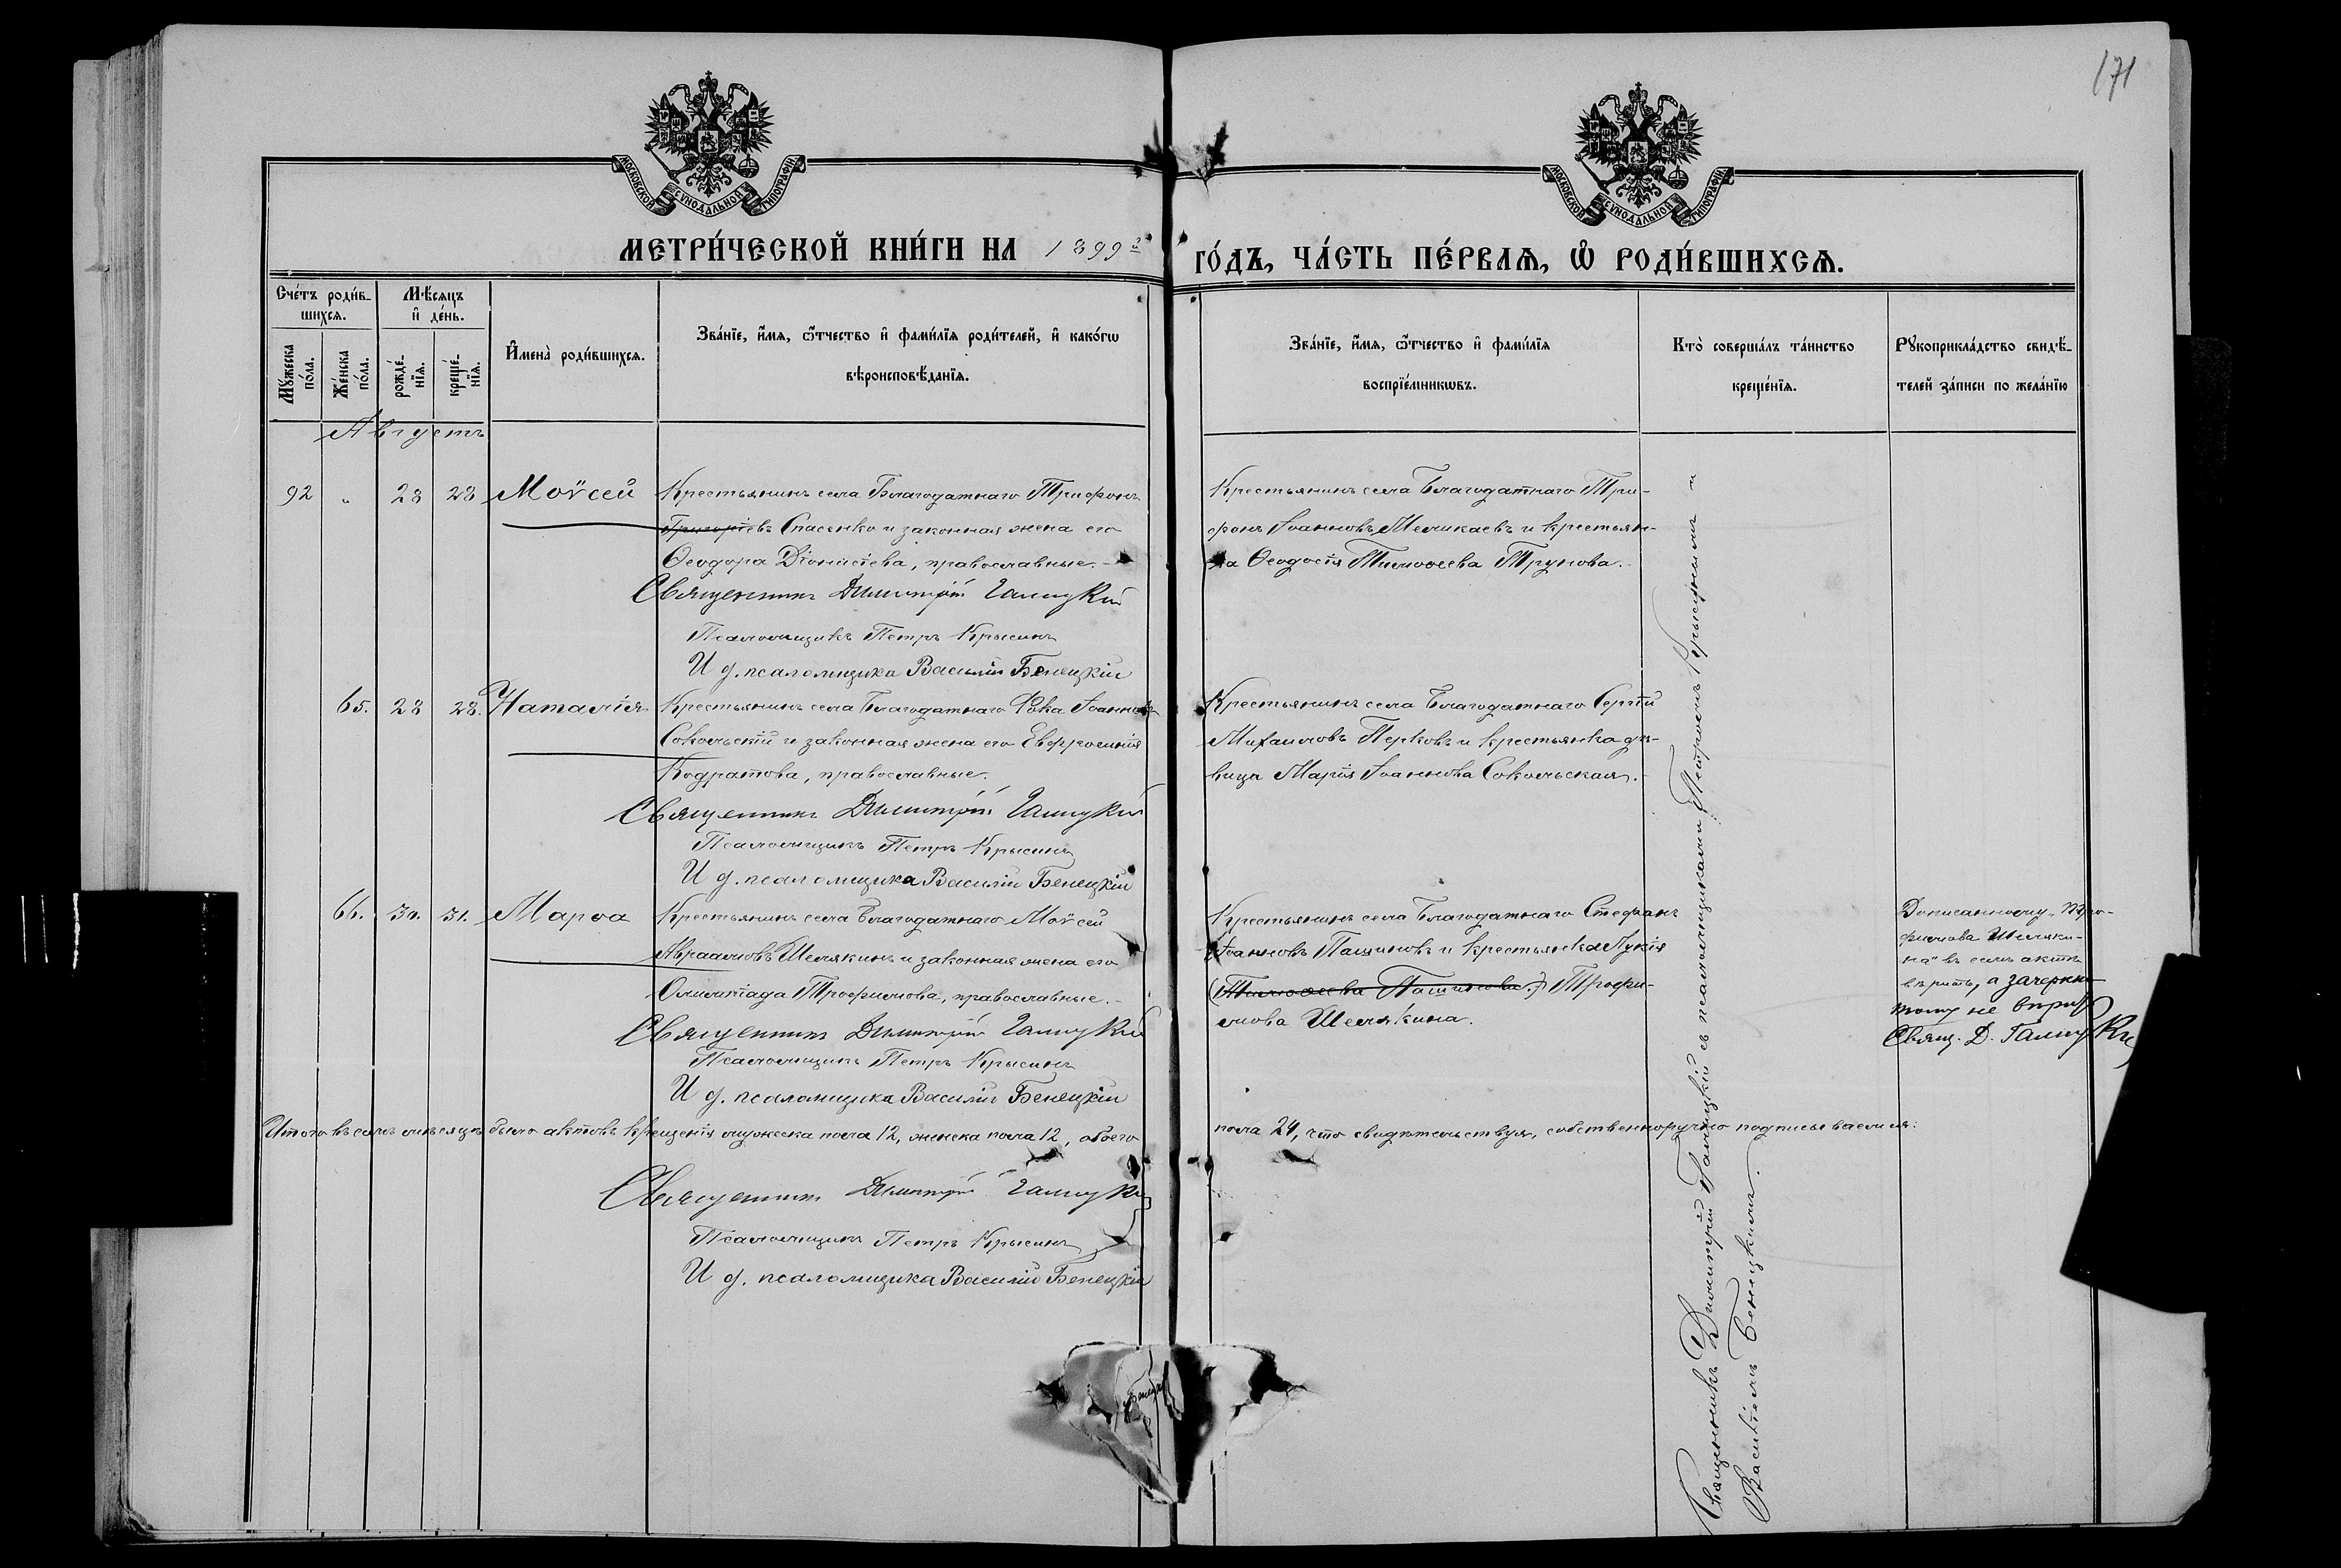 171
МОСКОВСКОЙ СУНОДАЛЬНОЙ ТИПОГРАФІИ
МОСКОВСКОЙ СУНОДАЛЬНОЙ ТИПОГРАФІИ
МЕТРИ́ЧЕСКОЙ КНИ́ГИ НА 1899 г
ГО́ДЪ, ЧА́СТЬ ПЕ́РВАѦ, Ѡ РОДИ́ВШИХСѦ.
Сче́тъ роди́в-
шихсѧ.
Мѣ́сяцъ
и҆ де́нь.
Мꙋ́жеска по́ла.
Же́нска по́ла.
рожде́-нїѧ.
креще́-нїѧ.
И҆мена̀ роди́вшихсѧ.
Зва́нїе, и҆́мѧ, ѻ҆́тчество и҆ фами́лїѧ роди́телей, и҆ како́гѡ
вѣроисповѣ́данїѧ.
Зва́нїе, и҆́мѧ, ѻ҆́тчество и҆ фами́лїѧ
воспрїе́мникѡвъ.
Кто̀ соверша́лъ та́инство
креще́нїѧ.
Рꙋкоприкла́дство свидѣ́-
телей за́писи по жела́нїю
Августъ
92 " 28 28 Моѵсей Крестьянинъ села Благодатнаго Трифонъ
Григоріевъ Спасенко и законная жена его
Ѳеодора Діонисіева, православные.
Священникъ Димитрій Галицкій
Псаломщикъ Петръ Крысинъ
И д. псаломщика Василій Бенецкій
Крестьянинъ села Благодатнаго Три-
фонъ Іоанновъ Мешкаевъ и крестьян-
ка Ѳеодосія Тимоѳеева Трунова.
65. 28 28. Наталія Крестьянинъ села Благодатнаго Фока Іоанновъ
Сокольскій и законная жена его Евфросинія
Кодратова, православные.
Священникъ Димитрій Галицкій
Псаломщикъ Петръ Крысинъ
И д. псаломщика Василій Бенецкій
Крестьянинъ села Благодатнаго Сергій
Михаиловъ Перковъ и крестьянка дѣ-
вица Марія Іоаннова Сокольская.
66. 30. 31. Марѳа Крестьянинъ села Благодатнаго Моѵсей
Авраамовъ Шемякинъ и законная жена его
Олимпіада Трофимова, православные.
Священникъ Димитрій Галицкій
Псаломщикъ Петръ Крысинъ
И д. псаломщика Василій Бенецкій
Крестьянинъ села Благодатнаго Стефанъ
Іоанновъ Пашиновъ и крестьянка Лукія
(Тимоѳеева Пашинова) Трофи-
мова Шемякина.
Дописанному „Тро-
фимова Шемяки-
на" въ семъ актѣ
вѣрить, а зачеркну-
тому не вѣрить
Свящ. Д. Галицкій
Итого въ семъ мѣсяцѣ было актовъ крещенія мужеска пола 12, женска пола 12, обоего
пола 24, что свидѣтельствуя, собственноручно подписываемся:
Священникъ Димитрій Галицкій
Псаломщикъ Петръ Крысинъ
И д. псаломщика Василій Бенецкій
Священникъ Димитрій Галицкій съ псаломщиками Петромъ Крысинымъ и
Василіемъ Бенецкимъ.